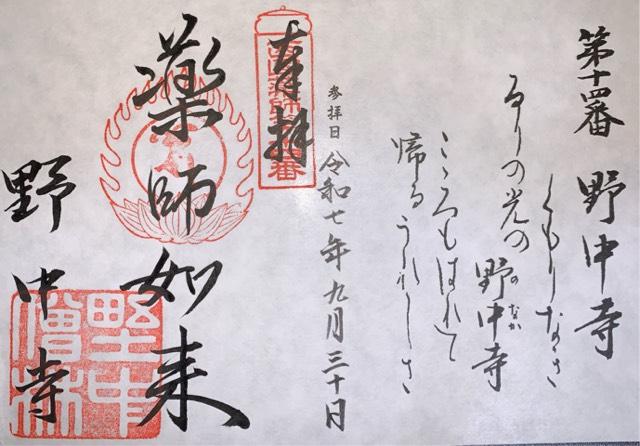 第十四番 野中寺
くもりなき
るりの光の
野中寺
のなか
こゝろもはれて
帰るうれしさ
参拝日 令和七年九月三十日
奉拝
薬師如来
野中寺
野中
僧林